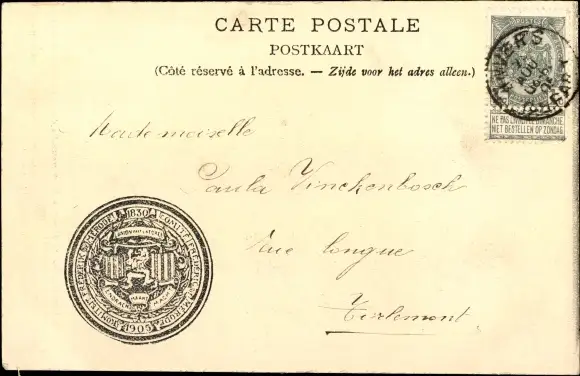 CARTE POSTALE
POSTKAART
(Côté réservé à l'adresse. — Zijde voor het adres alleen.)
NE PAS LIVRER LE DIMANCHE
NIET BESTELLEN OP ZONDAG
Mademoiselle
Paula Vinckenbosch
Rue longue
Tirlemont
1830
1905